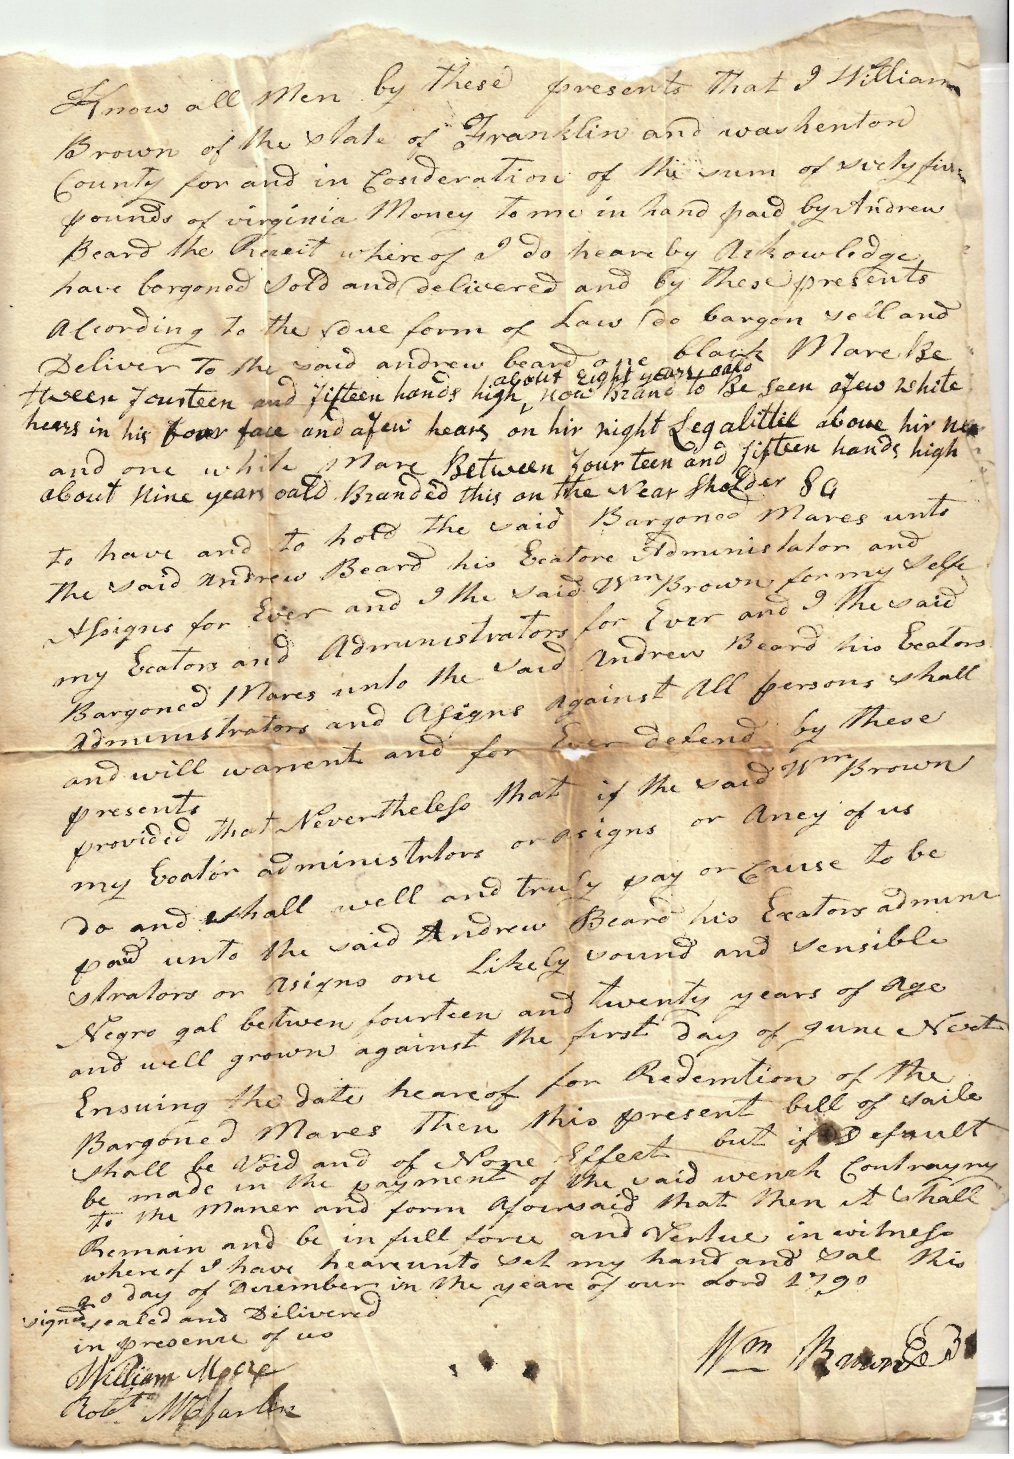 Know all Men by these presents that I William
Brown of the state of Franklin and washenton
County for and in Cosideration of the sum of sixty five
pounds of virginia Money to me in hand paid by Andrew
Beard the Receit where of I do heare by Acknowledge
have bargoned Sold and delivered and by these presents
According to the due form of Law do bargon sell and
Deliver to the said andrew beard one black Mare Be
about Eight years oald
tween fourteen and fifteen hands high, now Brand to Be seen afew white
hears in his four face and afew hears on hir right Leg alitlle above hir
and one white Mare Between fourteen and fifteen hands high
about Nine years oald Branded this on the Near Sholder
to have and to hold the said Bargoned Mares unto
the said Andrew Beard his Exators Administator and
Assigns for Ever and I the said Wm Brown for my Selfe
my Exators and Administrators for Ever and I the said
Bargoned Mares unto the said Andrew Beard his Exators
administrators and Asigns against All persons shall
and will warrent and for Ever defend by these
presents
provided that Nevertheless that if the said Wm Brown
my Exator administrtors or asigns or Aney of us
do and shall well and truly pay or Cause to be
paid unto the said Andrew Beard his Exators admini
strators or asigns one Likely sound and sensible
Negro gal betwen fourteen and twenty years of Age
and well grown against the first day of June Next
Ensuing the date heareof for Redemtion of the
Bargoned Mares then this present bill of saile
shall be Void and of None Effect but if Default
be made in the payment of the said wench Contrayry
to the Maner and form Aforesaid that then it shall
Remain and be in full force and Vertue in witness
where of I have heareunto set my hand and sal this
20 day of December in the yeare of our Lord 1790
signed sealed and Delivered
in presence of us
William Moore
Robt McFarlin
Wm Brown